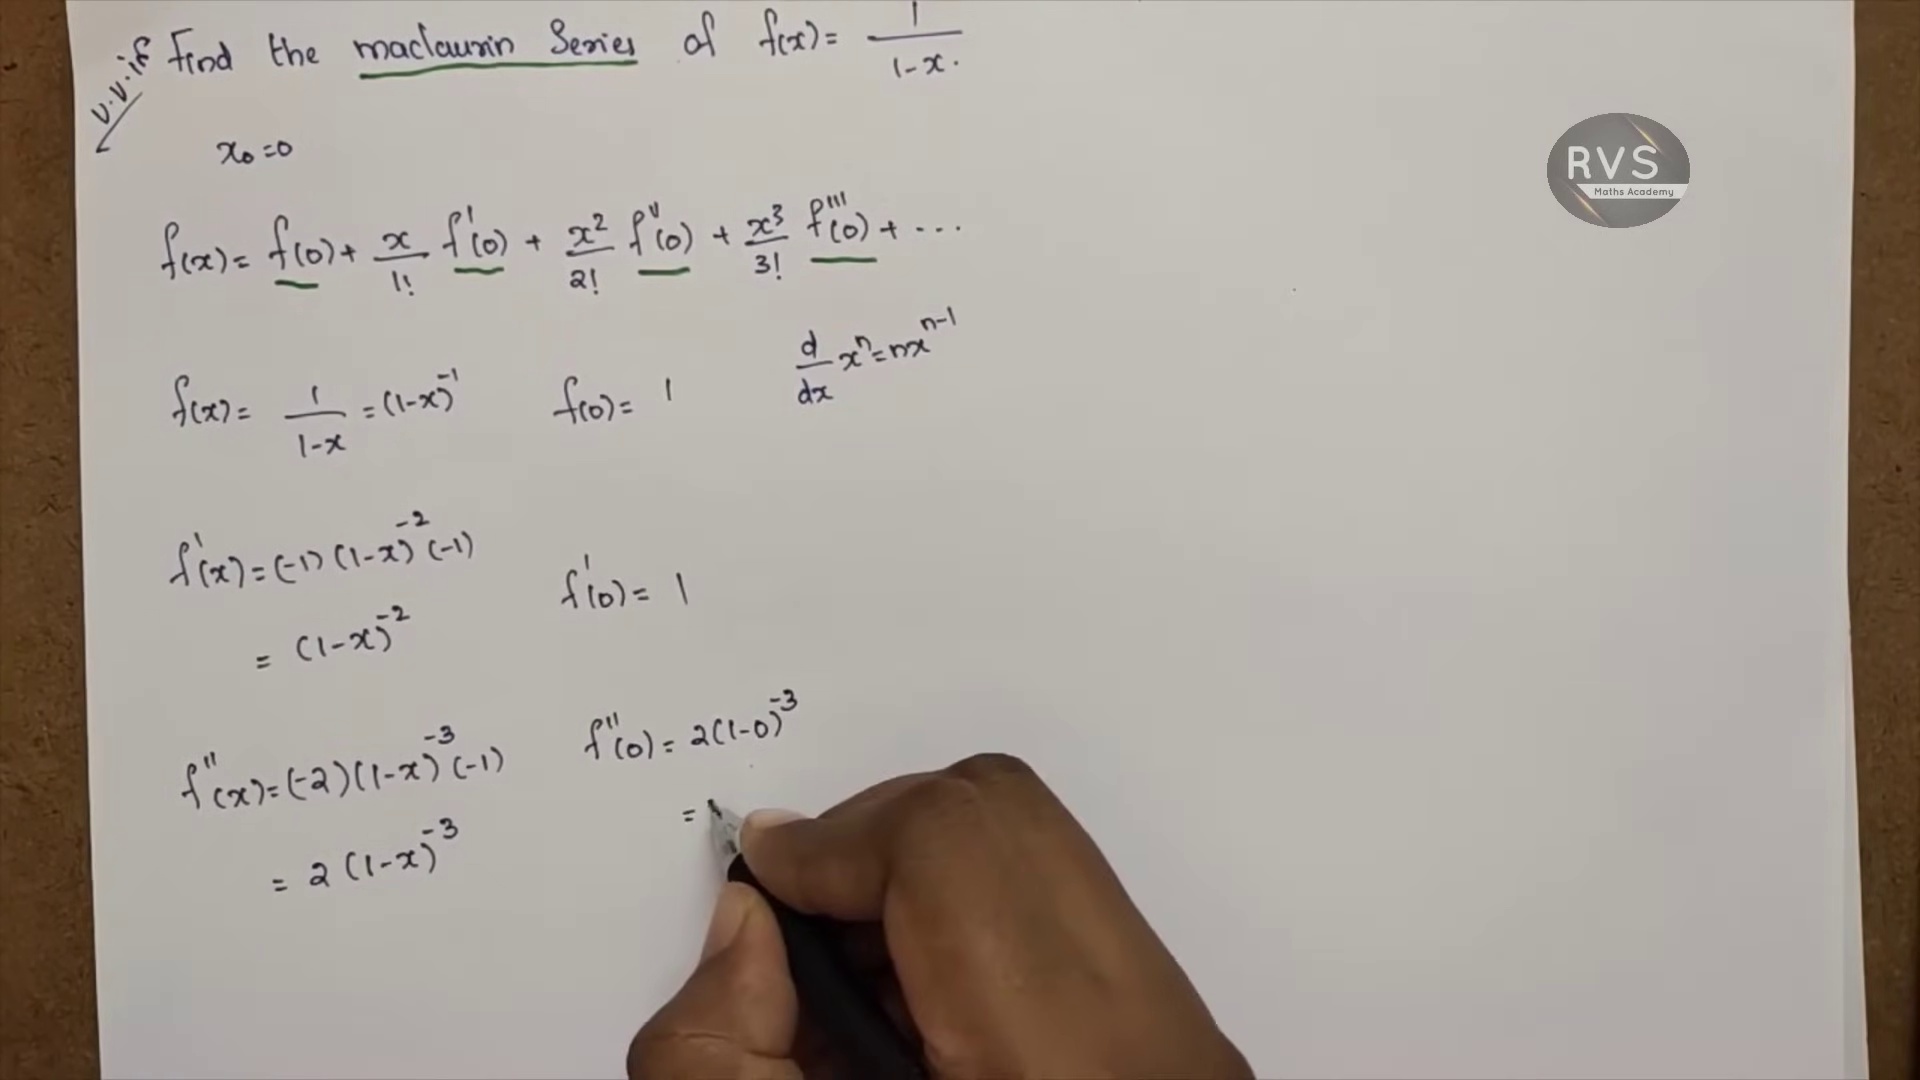 v.v.if Find the maclaurin Series of f(x) = 1/(1-x).
RVS
Maths Academy
x₀=0
f(x) = f(0) + x/1! f'(0) + x²/2! f''(0) + x³/3! f'''(0) + ...
d/dx xⁿ = nxⁿ⁻¹
f(x) = 1/(1-x) = (1-x)⁻¹ f(0) = 1
f'(x) = (-1)(1-x)⁻²(-1) f'(0) = 1
= (1-x)⁻²
f''(x) = (-2)(1-x)⁻³(-1) f''(0) = 2(1-0)⁻³
= 2(1-x)⁻³ =